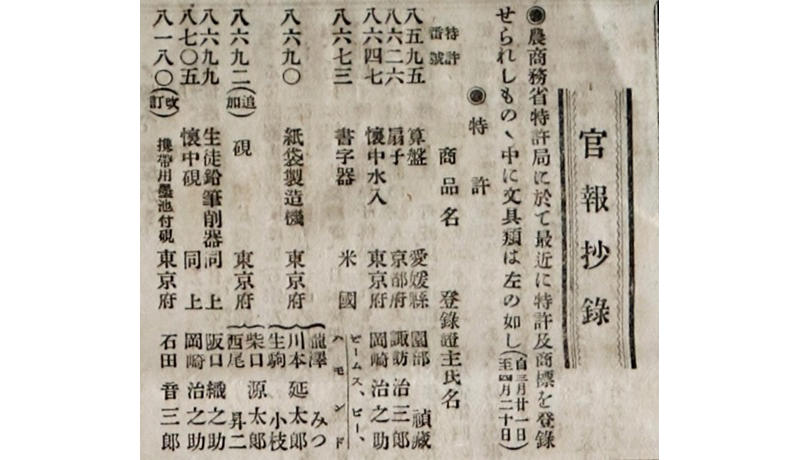 官報抄錄
◉農商務省特許局に於て最近に特許及商標を登錄
せられしもの丶中に文具類は左の如し(自三月廿一日至四月二十日)
◉特許
特許番號 商品名 登錄證主氏名
八五九五 算盤 愛媛縣 園部禎藏
八六二六 扇子 京都府 諏訪治三郎
八六四七 懷中水入 東京府 岡崎治之助
八六七三 書字器 米國 ビームス、ビー、ハモンド
八六九〇 紙袋製造機 東京府 瀧澤みつ 川本延太郎 生駒小枝
八六九二(追加) 硯 東京府 柴口源太郎 西尾昇二
八六九九 生徒鉛筆削器 同上 阪口織之助
八七〇五 懷中硯 同上 岡崎治之助
八一八〇(改訂) 携帶用墨池付硯 東京府 石田音三郎